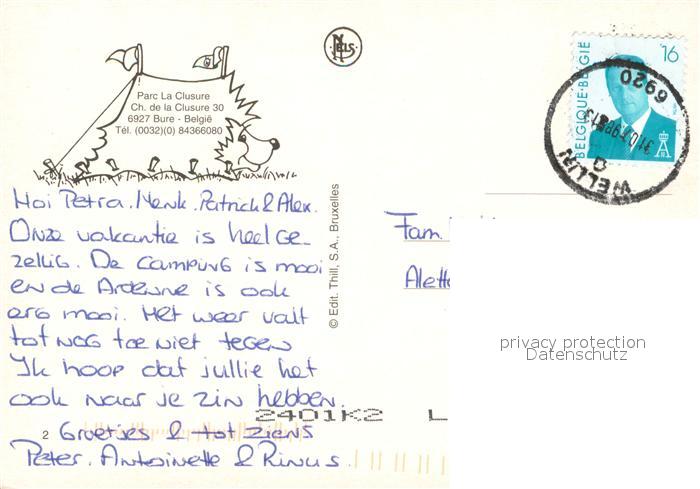 NELS
16
BELGIQUE-BELGIË
6920
WELLIN
Parc La Clusure
Ch. de la Clusure 30
6927 Bure - België
Tél. (0032)(0) 84366080
Hoi Petra. Henk. Patrick & Alex.
Onze vakantie is heel ge-
zellig. De camping is mooi
en de Ardenne is ook
erg mooi. Het weer valt
tot nog toe niet tegen
Ik hoop dat jullie het
ook naar je zin hebben.
Groetjes & tot ziens
Peter. Antoinette & Rinus.
© Edit. Thill, S.A., Bruxelles
Fam.
Alett
privacy protection
Datenschutz
2401K2 L
2